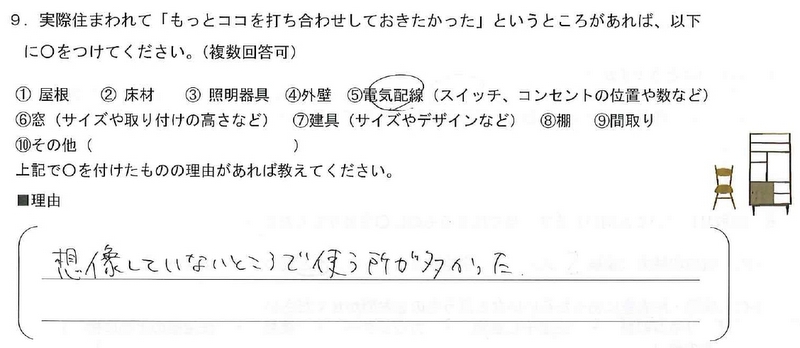 9．実際住まわれて「もっとココを打ち合わせしておきたかった」というところがあれば、以下
に〇をつけてください。（複数回答可）
① 屋根　② 床材　③ 照明器具　④外壁　⑤電気配線（スイッチ、コンセントの位置や数など）
⑥窓（サイズや取り付けの高さなど）　⑦建具（サイズやデザインなど）　⑧棚　⑨間取り
⑩その他（　　　　　　　　　　　）
上記で〇を付けたものの理由があれば教えてください。
■理由
想像していないところで使う所が多かった.